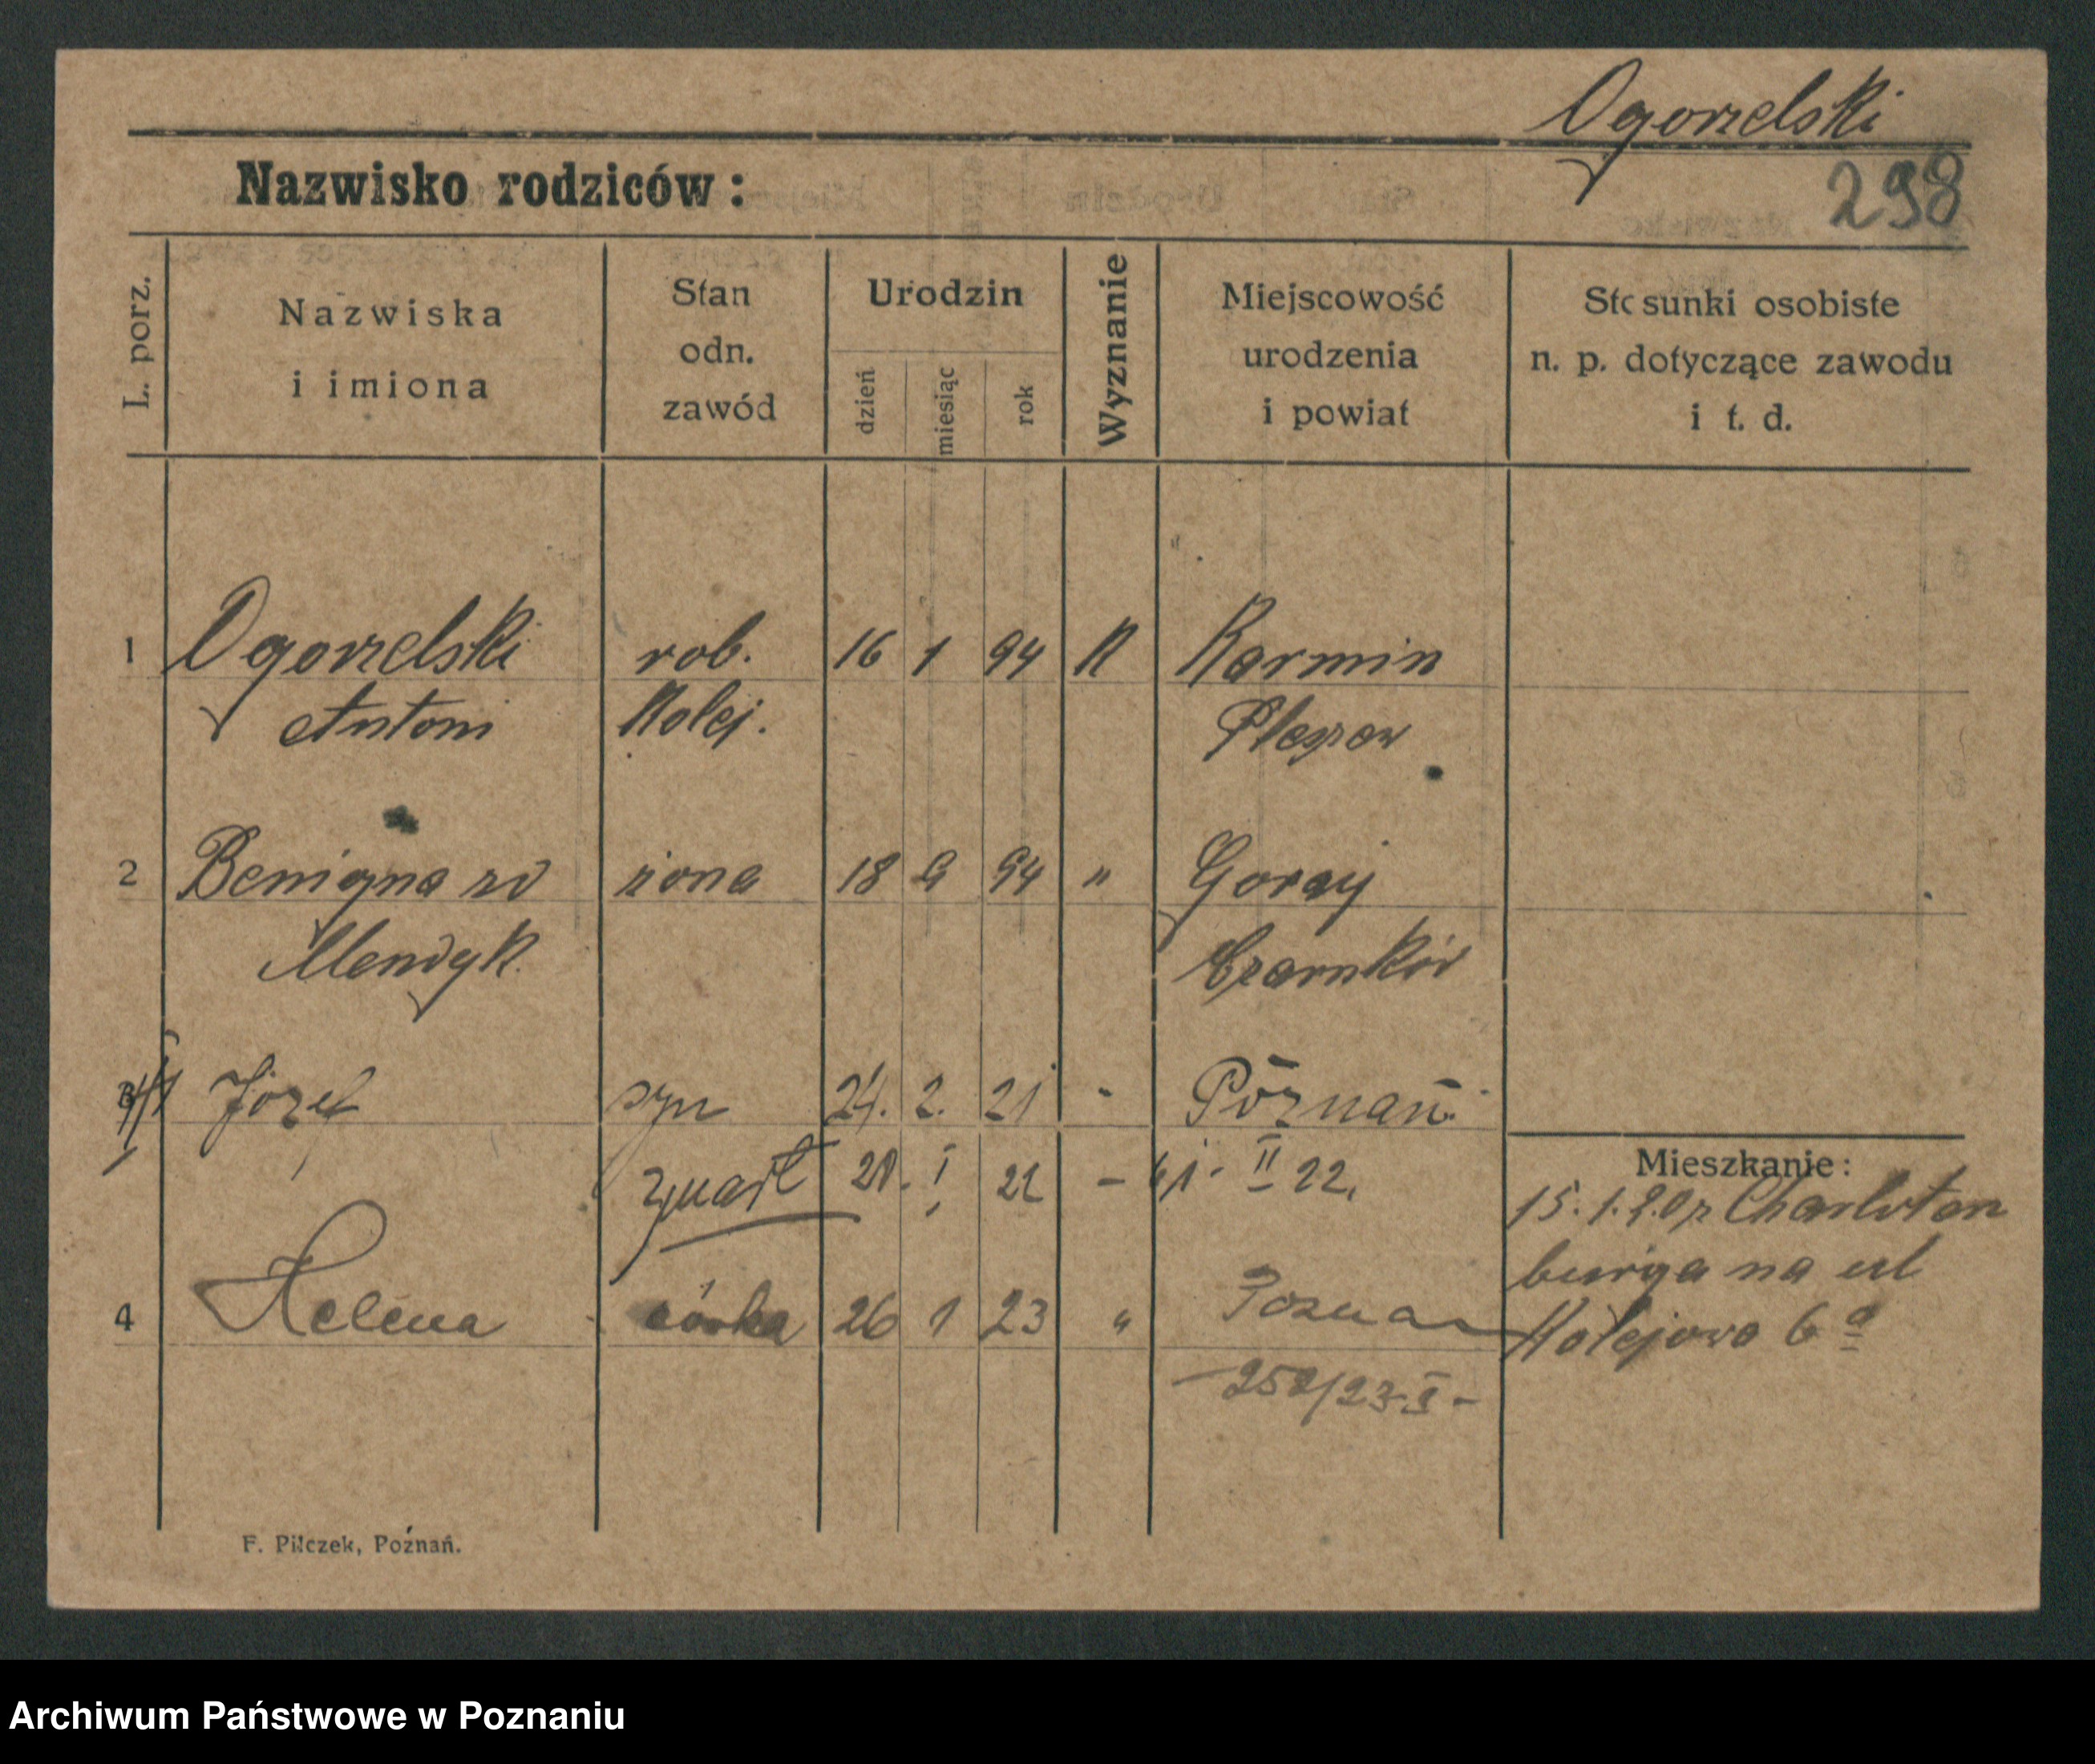 Ogorzelski
298
Nazwisko rodziców:
L. porz.
Nazwiska
i imiona
Stan
odn.
zawód
Urodzin
dzień
miesiąc
rok
Wyznanie
Miejscowość
urodzenia
i powiat
Stosunki osobiste
n. p. dotyczące zawodu
i t. d.
1 Ogorzelski rob. 16 1 94 K Karmin
Antoni Kolej. Pleszew
2 Benigna zd żona 18 9 94 " Goraj
Mendyk Czarnków
3 Józef syn 24. 2. 21 " Poznań
zmarł 21. I 22 - II 22.
Mieszkanie:
15.1.20 z Charloten
burga na ul
4 Helena córka 26 1 23 " Poznań
Kolejowa 6 a
250/23 I -
F. Pilczek, Poznań.
Archiwum Państwowe w Poznaniu